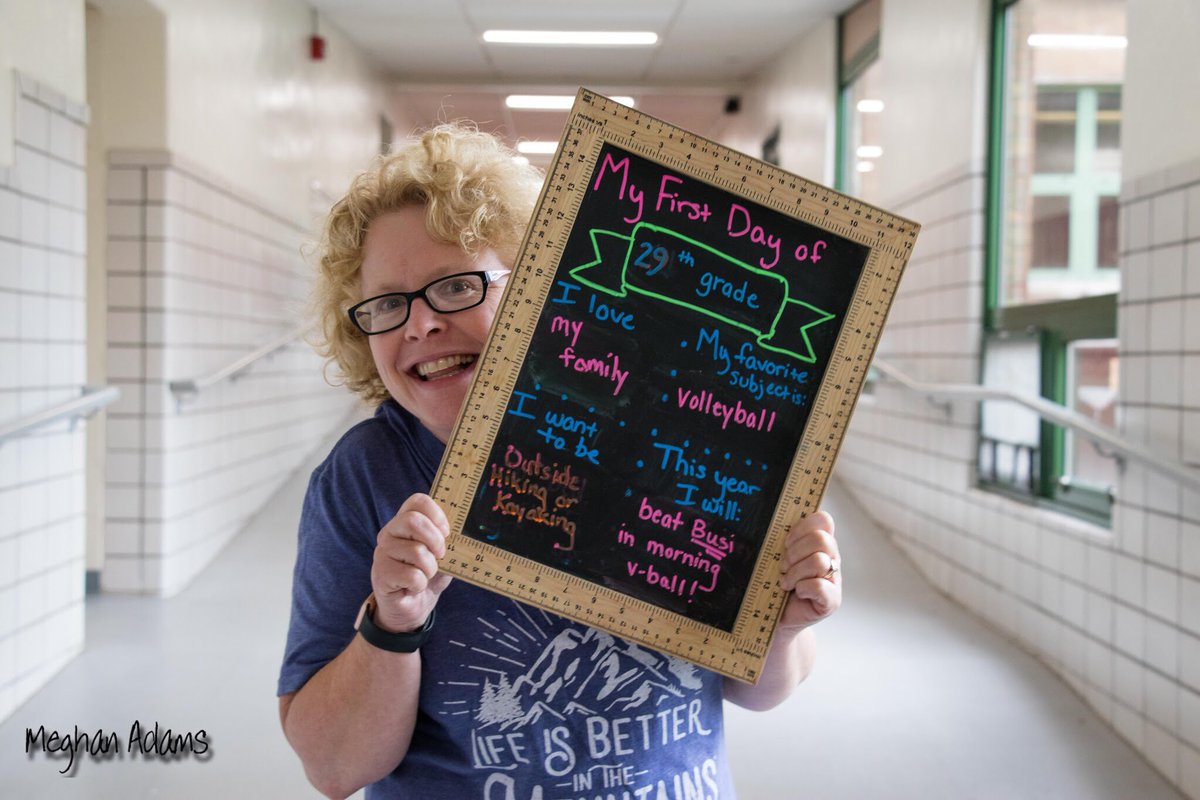 My First Day of
29th grade
I love
my
family
I want
to be
Outside!
Hiking or
Kayaking
My favorite
subject is:
volleyball
This year
I will:
beat Busi
in morning
v-ball!
LIFE IS BETTER
IN THE
MOUNTAINS
Meghan Adams